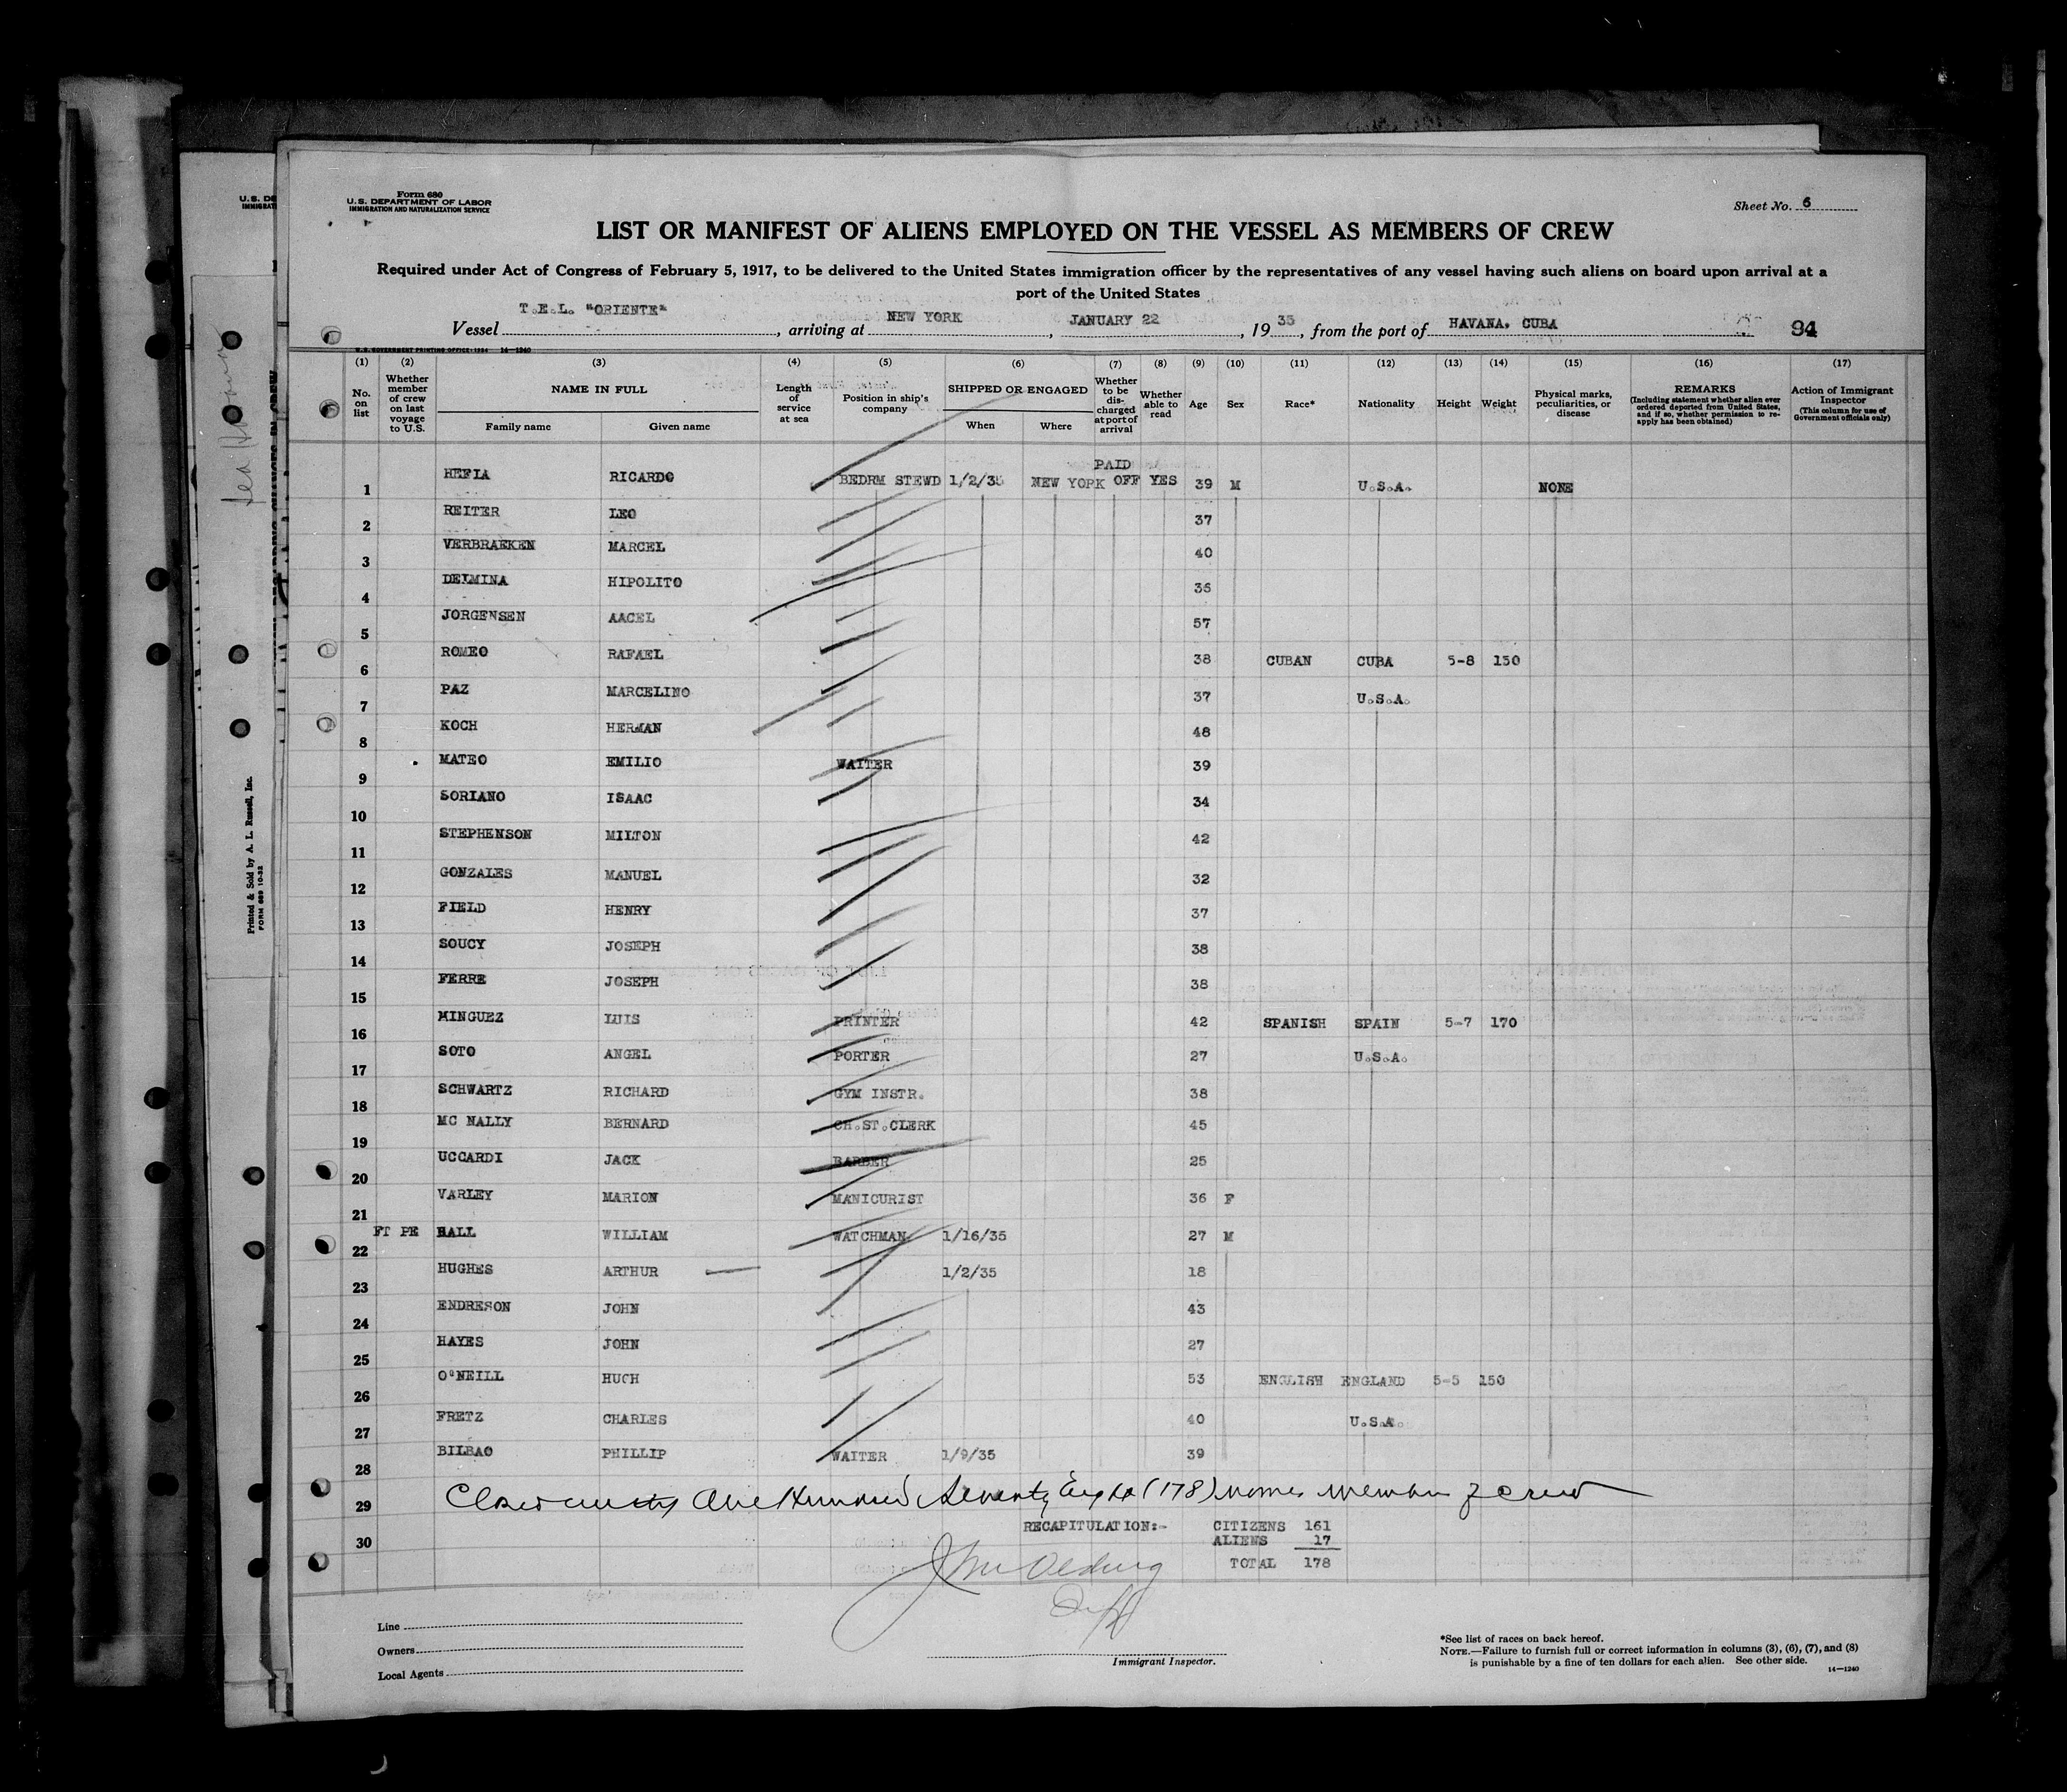 Form 680
U.S. DEPARTMENT OF LABOR
IMMIGRATION AND NATURALIZATION SERVICE
Sheet No. 6
LIST OR MANIFEST OF ALIENS EMPLOYED ON THE VESSEL AS MEMBERS OF CREW
Required under Act of Congress of February 5, 1917, to be delivered to the United States immigration officer by the representatives of any vessel having such aliens on board upon arrival at a
port of the United States
Vessel T.E.L. "ORIENTE", arriving at NEW YORK, JANUARY 22, 19 35, from the port of HAVANA, CUBA 94
U.S. GOVERNMENT PRINTING OFFICE: 1934 14—1240
(1) (2) (3) (4) (5) (6) (7) (8) (9) (10) (11) (12) (13) (14) (15) (16) (17)
No. on list
Whether member of crew on last voyage to U.S.
NAME IN FULL
Family name Given name
Length of service at sea
Position in ship's company
SHIPPED OR ENGAGED
When Where
Whether to be discharged at port of arrival
Whether able to read
Age
Sex
Race*
Nationality
Height
Weight
Physical marks, peculiarities, or disease
REMARKS
(Including statement whether alien ever ordered deported from United States, and if so, whether permission to reapply has been obtained)
Action of Immigrant Inspector
(This column for use of Government officials only)
1 HEFIA RICARDO BEDRM STEWD 1/2/35 NEW YORK PAID OFF YES 39 M U.S.A. NONE
2 REITER LEO 37
3 VERBRAEKEN MARCEL 40
4 DELMINA HIPOLITO 35
5 JORGENSEN AACEL 57
6 ROMEO RAFAEL 38 CUBAN CUBA 5-8 150
7 PAZ MARCELINO 37 U.S.A.
8 KOCH HERMAN 48
9 MATEO EMILIO WAITER 39
10 SORIANO ISAAC 34
11 STEPHENSON MILTON 42
12 GONZALES MANUEL 32
13 FIELD HENRY 37
14 SOUCY JOSEPH 38
15 FERRE JOSEPH 38
16 MINGUEZ LUIS PRINTER 42 SPANISH SPAIN 5-7 170
17 SOTO ANGEL PORTER 27 U.S.A.
18 SCHWARTZ RICHARD GYM INSTR. 38
19 MC NALLY BERNARD CH.ST.CLERK 45
20 UCCARDI JACK BARBER 25
21 VARLEY MARION MANICURIST 36 F
22 FT PE BALL WILLIAM WATCHMAN 1/16/35 27 M
23 HUGHES ARTHUR 1/2/35 18
24 ENDRESON JOHN 43
25 HAYES JOHN 27
26 O'NEILL HUGH 53 ENGLISH ENGLAND 5-5 150
27 FRETZ CHARLES 40 U.S.A.
28 BILBAO PHILLIP WAITER 1/9/35 39
29 One Hundred Seventy Eight (178) names members of crew
30
RECAPITULATION:- CITIZENS 161
ALIENS 17
TOTAL 178
Line
Owners
Local Agents
Immigrant Inspector.
*See list of races on back hereof.
NOTE.—Failure to furnish full or correct information in columns (3), (6), (7), and (8)
is punishable by a fine of ten dollars for each alien. See other side.
14—1240
Printed & Sold by A. L. Russell, Inc.
FORM 689 10-32